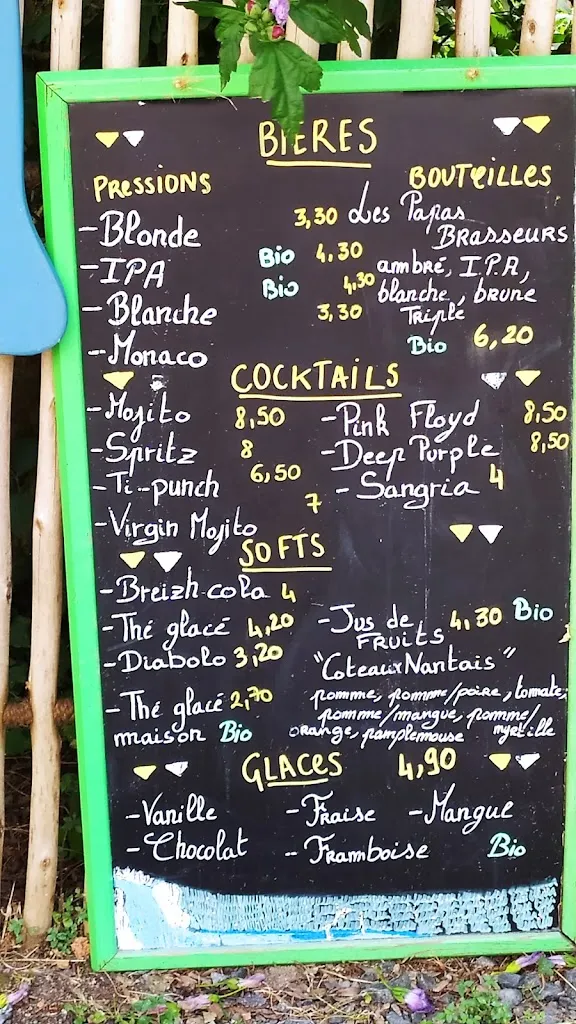 BIERES
PRESSIONS
- Blonde 3,30
- IPA Bio 4,30
- Blanche Bio 4,30
- Monaco 3,30
BOUTEILLES
Les Papas
BRASSEURS
ambré, I.P.A,
blanche, brune
Triple
Bio 6,20
COCKTAILS
- Mojito 8,50
- Spritz 8
- Ti-punch 6,50
- Virgin Mojito 7
- Pink Floyd 8,50
- Deep Purple 8,50
- Sangria 4
SOFTS
- Breizh cola 4
- Thé glacé 4,20
- Diabolo 3,20
- Thé glacé 2,70
maison Bio
- Jus de 4,30 Bio
FRUITS
"Coteaux Nantais"
pomme, pomme/poire, tomate,
pomme/mangue, pomme/
orange, pamplemouse myrtille
GLACES 4,90
- Vanille - Fraise - Mangue
- Chocolat - Framboise Bio